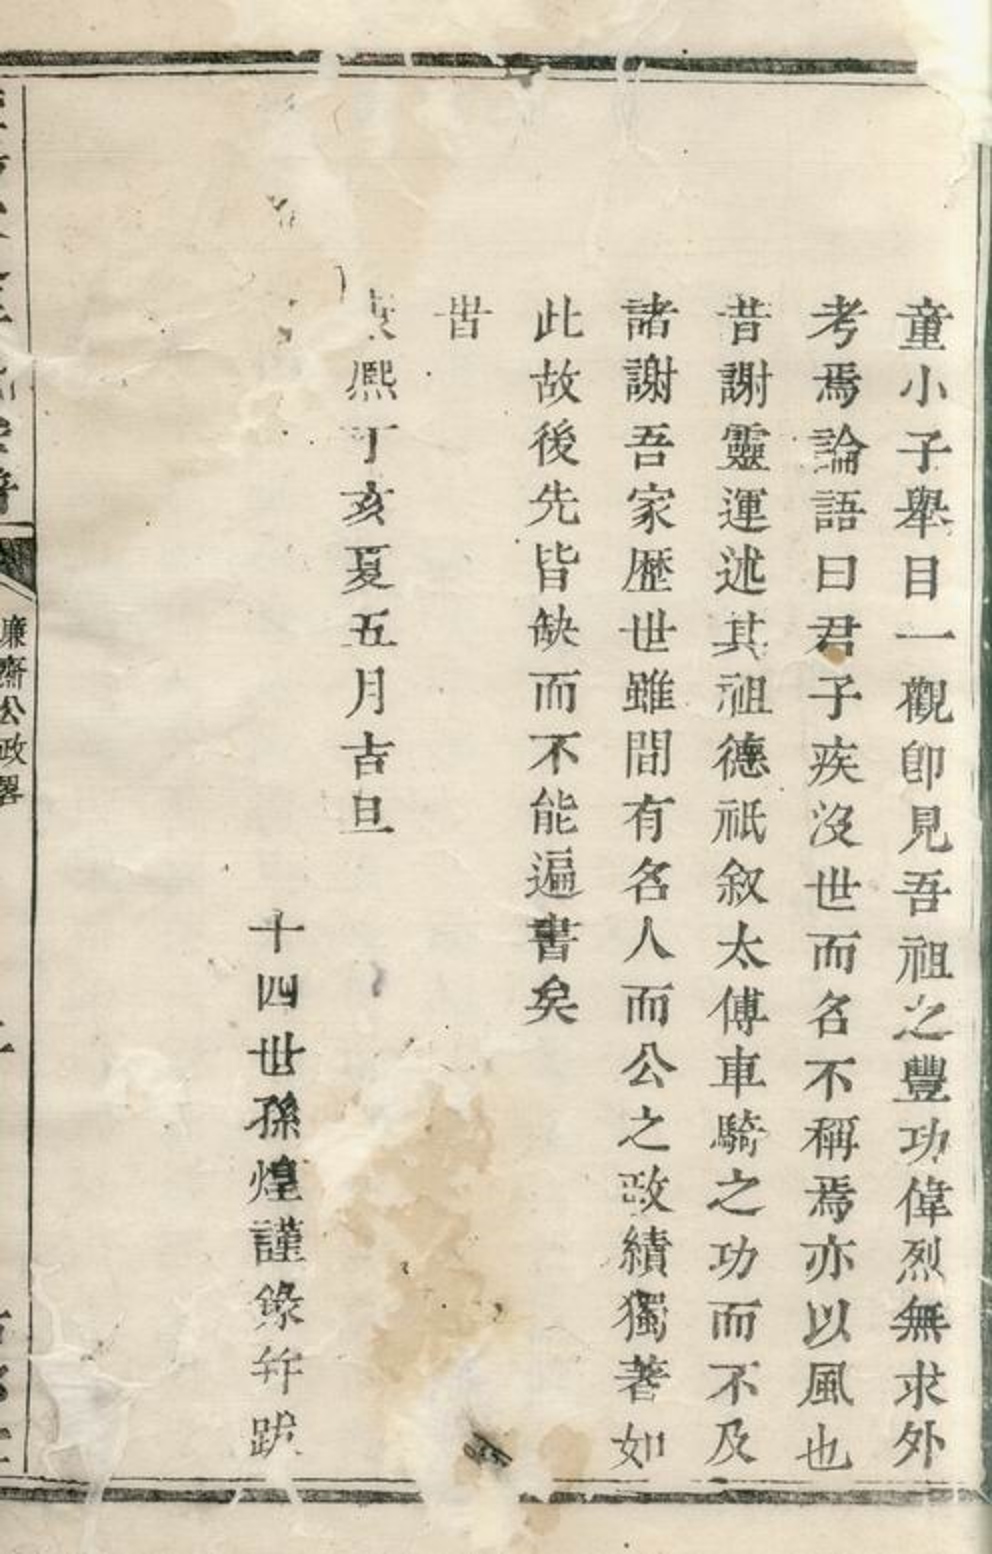 童小子舉目一觀卽見吾祖之豐功偉烈無求外
考焉論語曰君子疾沒世而名不稱焉亦以風也
昔謝靈運述其祖德祇叙太傅車騎之功而不及
諸謝吾家歷世雖間有名人而公之政績獨著如
此故後先皆缺而不能遍書矣
旹
熈丁亥夏五月吉旦
十四世孫煌謹錄并跋
廉齋公政畧